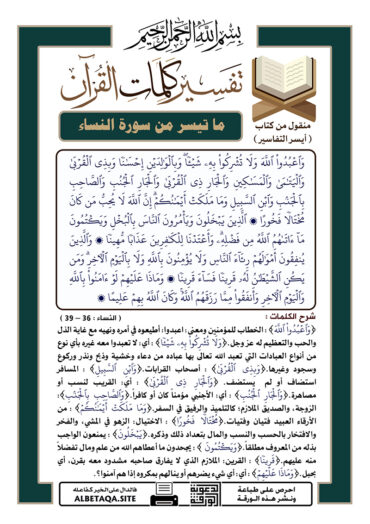 بسم الله الرحمن الرحيم
تفسير كلمات القرآن
ما تيسر من سورة النساء
منقول من كتاب
( أيسر التفاسير )
وَٱعْبُدُوا۟ ٱللَّهَ وَلَا تُشْرِكُوا۟ بِهِۦ شَيْـًٔا وَبِٱلْوَٰلِدَيْنِ إِحْسَٰنًا وَبِذِى ٱلْقُرْبَىٰ
وَٱلْيَتَٰمَىٰ وَٱلْمَسَٰكِينِ وَٱلْجَارِ ذِى ٱلْقُرْبَىٰ وَٱلْجَارِ ٱلْجُنُبِ وَٱلصَّاحِبِ
بِٱلْجَنۢبِ وَٱبْنِ ٱلسَّبِيلِ وَمَا مَلَكَتْ أَيْمَٰنُكُمْ إِنَّ ٱللَّهَ لَا يُحِبُّ مَن كَانَ
مُخْتَالًا فَخُورًا ۞ ٱلَّذِينَ يَبْخَلُونَ وَيَأْمُرُونَ ٱلنَّاسَ بِٱلْبُخْلِ وَيَكْتُمُونَ
مَآ ءَاتَىٰهُمُ ٱللَّهُ مِن فَضْلِهِۦ وَأَعْتَدْنَا لِلْكَٰفِرِينَ عَذَابًا مُّهِينًا ۞ وَٱلَّذِينَ
يُنفِقُونَ أَمْوَٰلَهُمْ رِئَآءَ ٱلنَّاسِ وَلَا يُؤْمِنُونَ بِٱللَّهِ وَلَا بِٱلْيَوْمِ ٱلْءَاخِرِ وَمَن
يَكُنِ ٱلشَّيْطَٰنُ لَهُۥ قَرِينًا فَسَآءَ قَرِينًا ۞ وَمَاذَا عَلَيْهِمْ لَوْ ءَامَنُوا۟ بِٱللَّهِ
وَٱلْيَوْمِ ٱلْءَاخِرِ وَأَنفَقُوا۟ مِمَّا رَزَقَهُمُ ٱللَّهُ وَكَانَ ٱللَّهُ بِهِمْ عَلِيمًا ۞
شرح الكلمات : ( النساء : 36 – 39 )
﴿وَٱعْبُدُوا۟ ٱللَّهَ﴾ : الخطاب للمؤمنين ومعنى : اعبدوا : أطيعوه في أمره ونهيه مع غاية الذل
والحب والتعظيم له عز وجل. ﴿وَلَا تُشْرِكُوا۟ بِهِۦ شَيْـًٔا﴾ : أي : لا تعبدوا معه غيره بأي نوع
من أنواع العبادات التي تعبد الله تعالى بها عباده من دعاء وخشية وذبح ونذر وركوع
وسجود وغيرها. ﴿وَبِذِى ٱلْقُرْبَىٰ﴾ : أصحاب القرابات. ﴿وَٱبْنِ ٱلسَّبِيلِ﴾ : المسافر
استضاف أو لم يستضف. ﴿وَٱلْجَارِ ذِى ٱلْقُرْبَىٰ﴾ : أي : القريب لنسب أو
مصاهرة. ﴿وَٱلْجَارِ ٱلْجُنُبِ﴾ : أي : الأجنبي مؤمنا كان أو كافراً. ﴿وَٱلصَّاحِبِ بِٱلْجَنۢبِ﴾ :
الزوجة، والصديق الملازم؛ كالتلميذ والرفيق في السفر. ﴿وَمَا مَلَكَتْ أَيْمَٰنُكُمْ﴾ : من
الأرقاء العبيد فتيان وفتيات. ﴿مُخْتَالًا فَخُورًا﴾ : الاختيال : الزهو في المشي، والفخر
والافتخار بالحسب والنسب والمال بتعداد ذلك وذكره. ﴿يَبْخَلُونَ﴾ : يمنعون الواجب
بذله من المعروف مطلقاً. ﴿وَيَكْتُمُونَ﴾ : يجحدون ما أعطاهم الله من علم ومال تفضلاً
منه عليهم. ﴿قَرِينًا﴾ : القرين : الملازم الذي لا يفارق صاحبه مشدود معه بقرن، أي
بحبل. ﴿وَمَاذَا عَلَيْهِمْ﴾ : أي : أي شيء يضرهم أو ينالهم بمكروه إذا هم آمنوا؟.
احرص على طباعة
ونشر هذه الورقة
الورقة
فالدال على الخير كفاعله
ALBETAQA.SITE